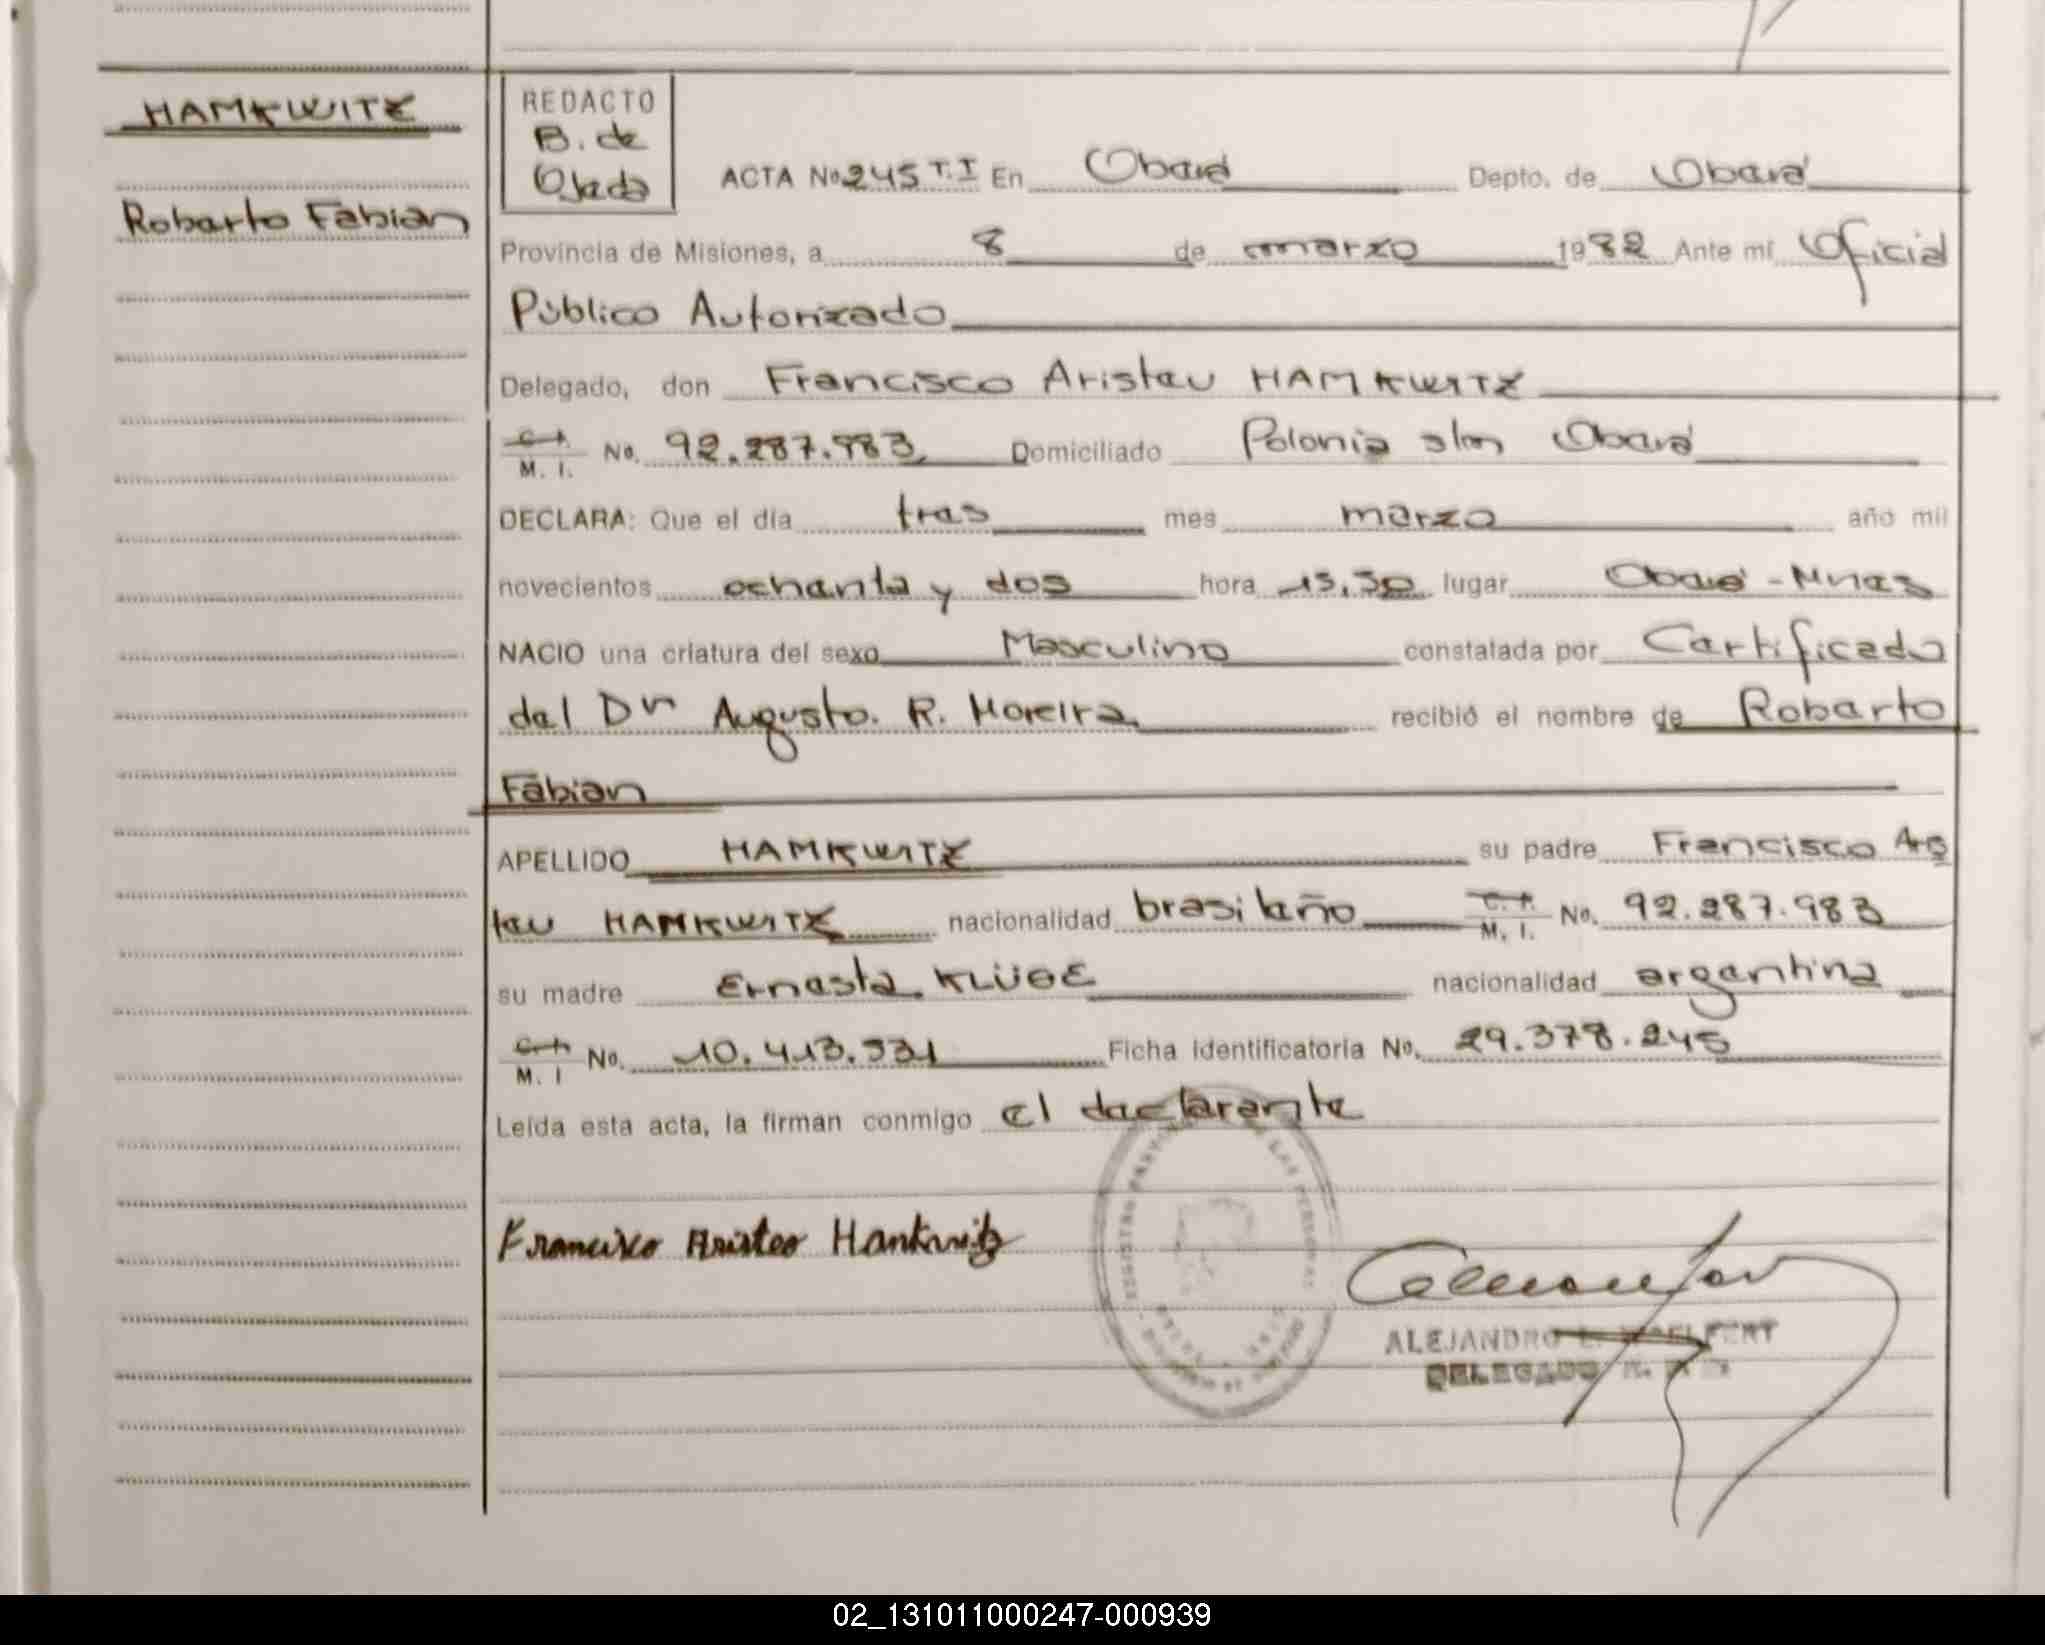 HAMKWITZ
Roberto Fabian
REDACTO
B. de
Ojeda
ACTA No 245 T. I En Oberá Depto. de Oberá
Provincia de Misiones, a 8 de marzo 1982 Ante mí Oficial
Público Autorizado
Delegado, don Francisco Aristeu HAMKWITZ
C. I. M. I. No. 92.287.983 Domiciliado Polonia s/n Oberá
DECLARA: Que el día tres mes marzo año mil
novecientos ochenta y dos hora 15,30 lugar Oberá - Mnes
NACIO una criatura del sexo Masculino constatada por Certificado
del Dr Augusto. R. Moreira recibió el nombre de Roberto
Fabian
APELLIDO HAMKWITZ su padre Francisco Aris
teu HAMKWITZ nacionalidad brasileño C. I. M. I. No. 92.287.983
su madre Ernesta KLÜGE nacionalidad argentina
C. I. M. I No. 10.413.931 Ficha identificatoria No. 29.378.245
Leída esta acta, la firman conmigo el declarante
Francisco Aristeo Hankwitz
ALEJANDRO
DELEGADO
02_131011000247-000939